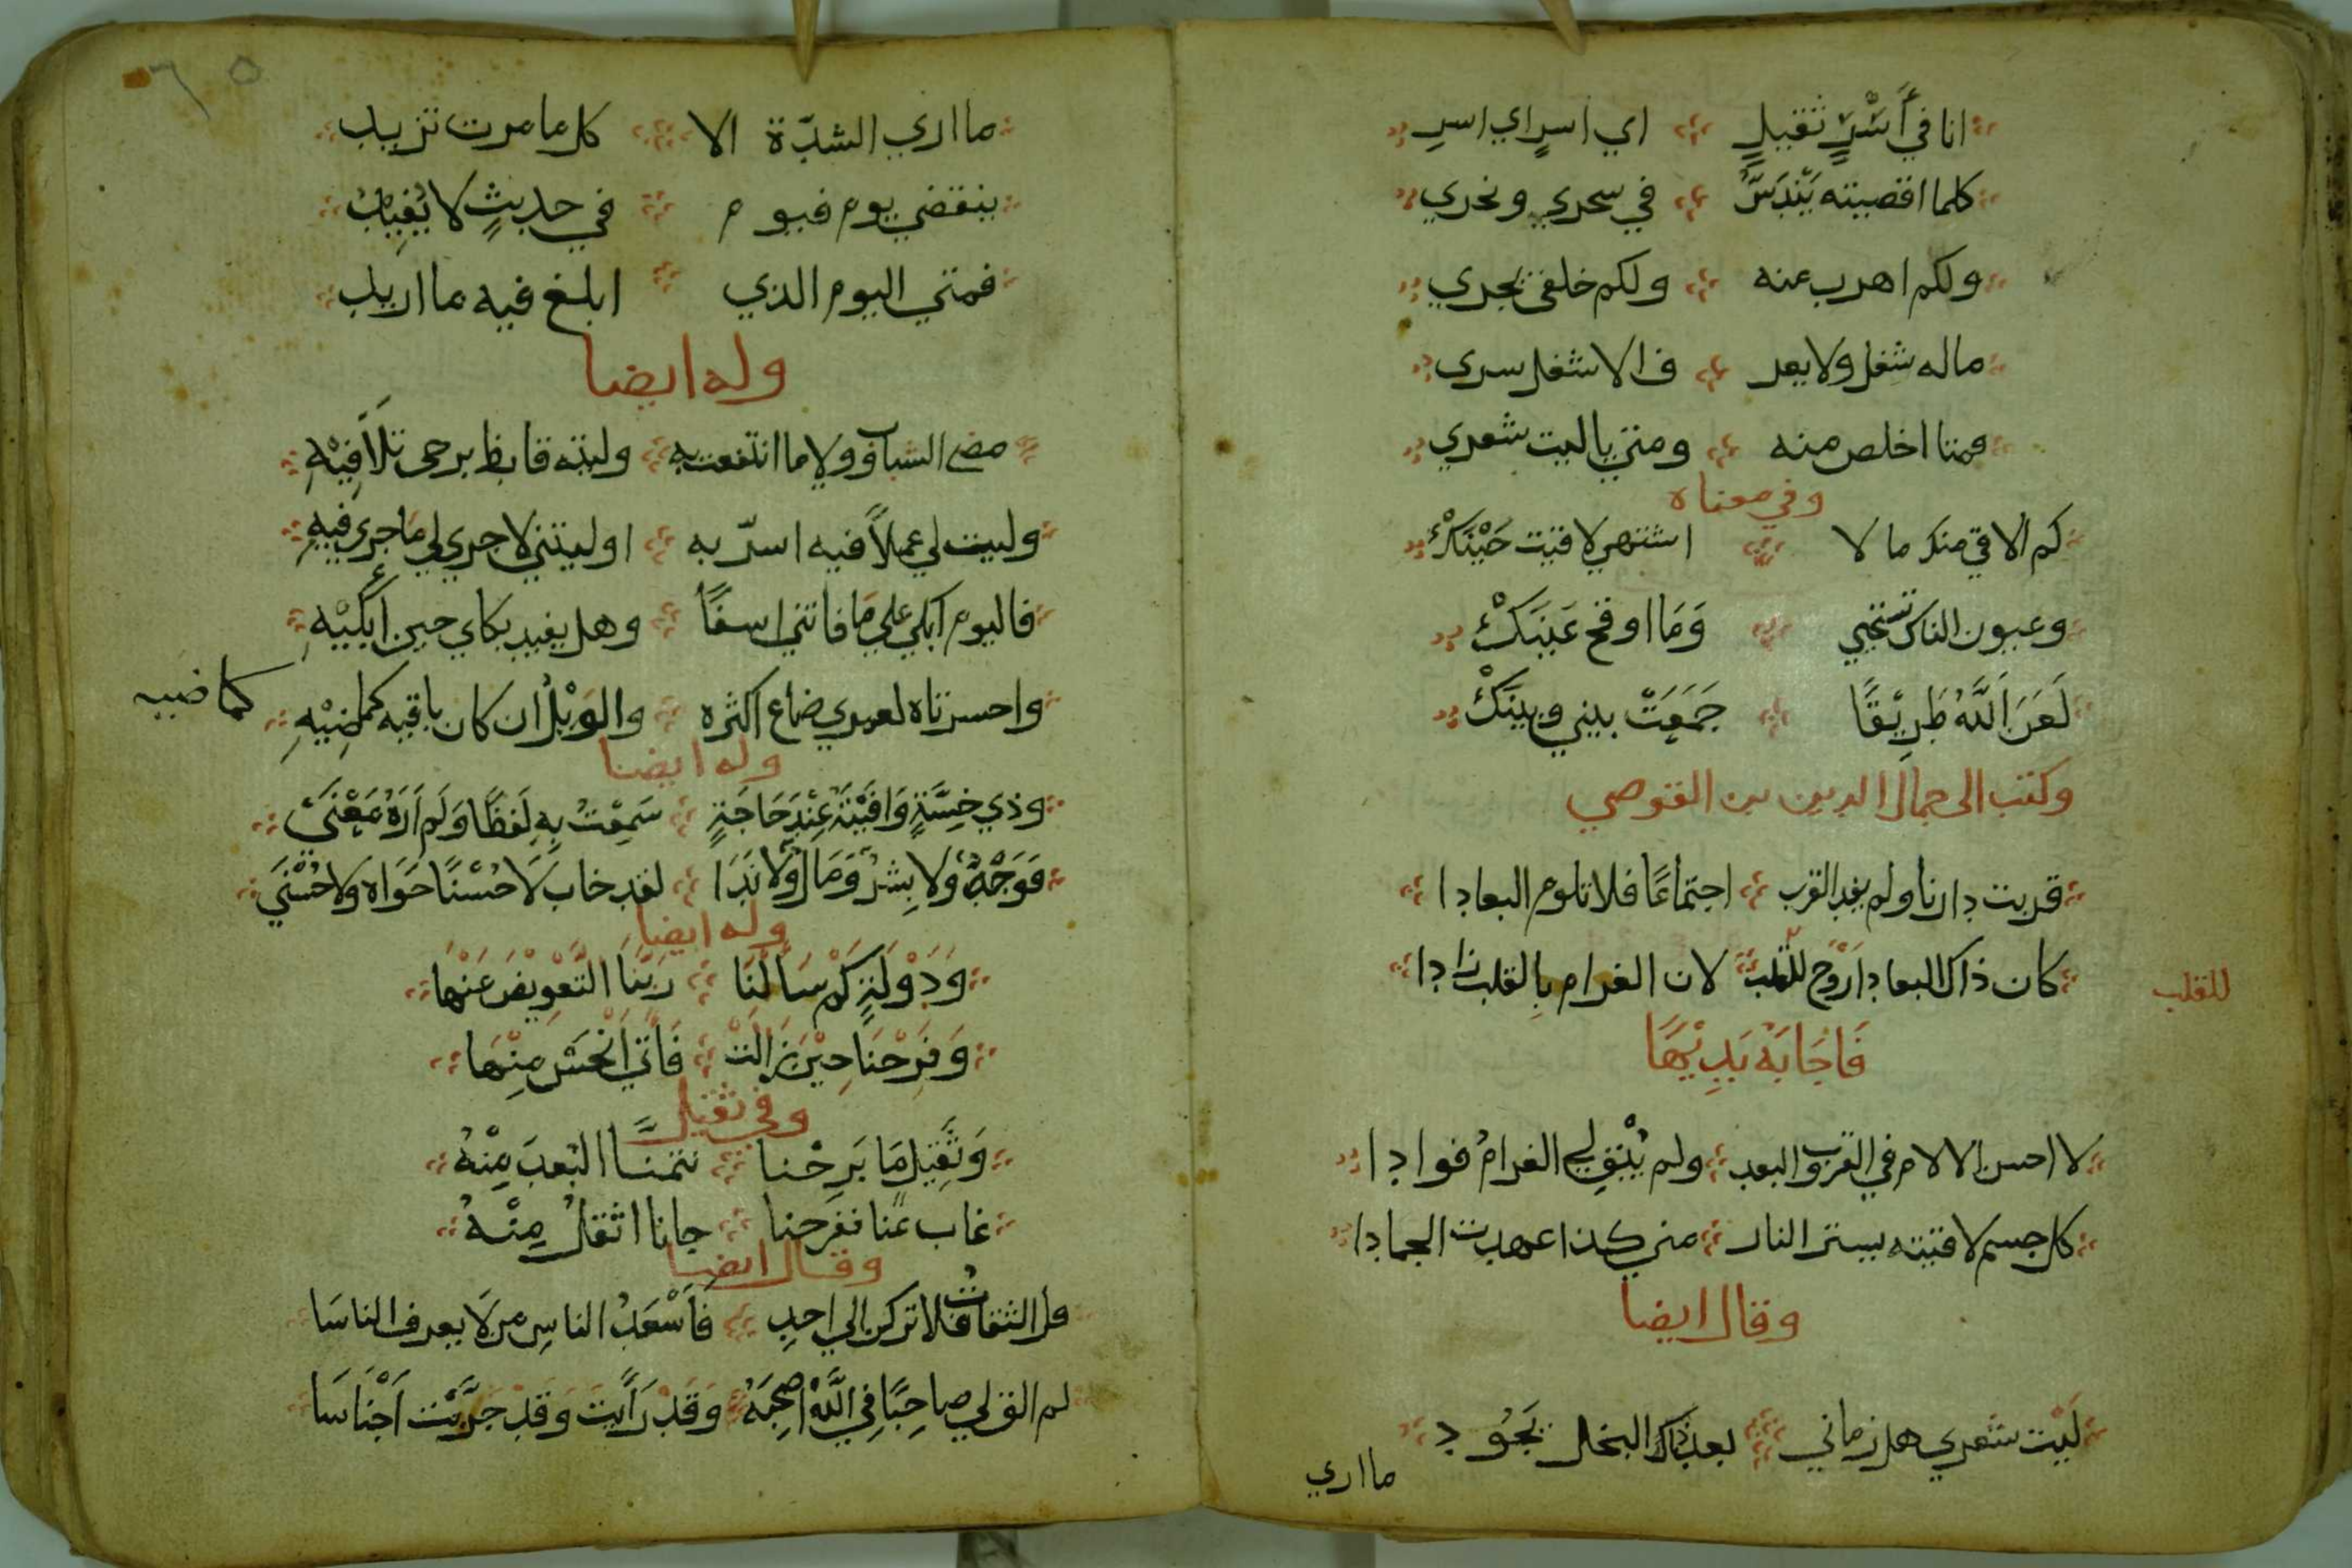 انا في أَسْرٍ ثقيلٍ اي اسرٍ اي اسرِ
كلما اقصيته يَنْدَسُّ في سحري ونحري
ولكم اهرب عنه ولكم خلفي يجري
ماله شغل ولا يعر ف الا شغل سرى
فمتا اخلص منه ومتي ياليت شعري
وفي معناه
كم الاقي منك ما لا اشتهي لاقيت حَيْنَكْ
وعيون الناس تستحيي وَمَا اوقح عَيْنَكْ
لَعَنَ اَللَّهُ طَرِيْقًا جَمَعَتْ بيني وبينَكْ
وكتب الى جمال الدين بن القوصي
قربت دارنا ولم يفد القرب اجتماعًا فلا تلوم البعادا
كان ذاك البعاد اَرْوَح للقلب لان الغرام بالقلب زادا
للقلب
فَاجَابَهُ بَدِيْهًا
لا احسن الالام في القرب والبعد ولم يُبْقِ لي الغرامُ فوادا
كل جسم لاقيته يستر النار متي كذا عهدت الجمادا
وقال ايضا
لَيْت شعري هل زماني بعد ذاك البخل يَجُود
مااري
٦٥
ما اري الشدّة الا كل ما مرت تزيد
ينقضي يوم فيوم في حديثٍ لا يُفِيدُ
فمتي اليوم الذي ابلغ فيه ما اريد
وله ايضا
مضى الشباب وولا ما انتفعت به وليته فارط يرجى تلَافِيْهِ
وليت لي عملًا فيه اسرّ به او ليتني لا جري لي مَا جري فيهِ
فاليوم ابكي علي مَا فاتني اسفًا وهل يفيد بكاي حين أَبْكِيْهِ
واحسرتاه لعمري ضاع اكثره والوَيْلُ ان كان باقيه كماضِيْهِ
كماضيه
وله ايضا
وذي خِسَّةٍ وَافَيْتَهُ عِنْدَ حَاجَةٍ سَمِعْتُ بِهِ لَفظًا وَلَم اَرَهُ مَعْنَى
فوَجْهٌ وَلا بِشْرٌ وَمَالٌ وَلَا نَدَا لقد خاب لَا حُسْنًا حَوَاهُ وَلَا حُسْنَي
وله ايضا
وَدَوْلَةٍ كَمْ سَأَلْنَا رَبّنَا التَّعْوِيْضَ عَنْهَا
وَفَرْحنَا حِيْنَ زَالَت فَأتَي اَنْحَسُ مِنْهَا
وفي ثقيل
وَثَقِيْلٍ مَا بَرِحْنا نتمنا البُعدَ مِنْهُ
غاب عنا ففرحنا جانا اثقلُ مِنْهُ
وقال ايضا
قل الثقاتُ فلا تركن الي احدِ فَأَسْعَدُ الناسِ من لَا يعرف الناسَا
لم الق لي صاحِبًا فِي اللَّهِ اصحِبَهُ وَقَدْ رَأَيتُ وَقَدْ جَرَّبْت اَجْنَاسَا